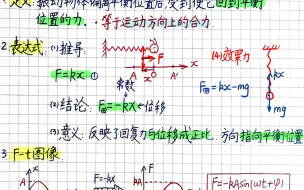 定义:振动物体偏离平衡位置后,受到使它回到平衡
位置的力。·等于运动方向上的合力.
2. 表达式: (1)推导:
(4)效果力
F=kx ①
F
A' O x A
常数
kx
F回=kx-mg
mg
(2)结论: F回=-kx→位移
(3)意义: 反映了回复力与位移成正比. 方向指向平衡位置
3. F-t图像.
x
A
F=-kx
F
kA
F=-kAsin(ωt+φ)